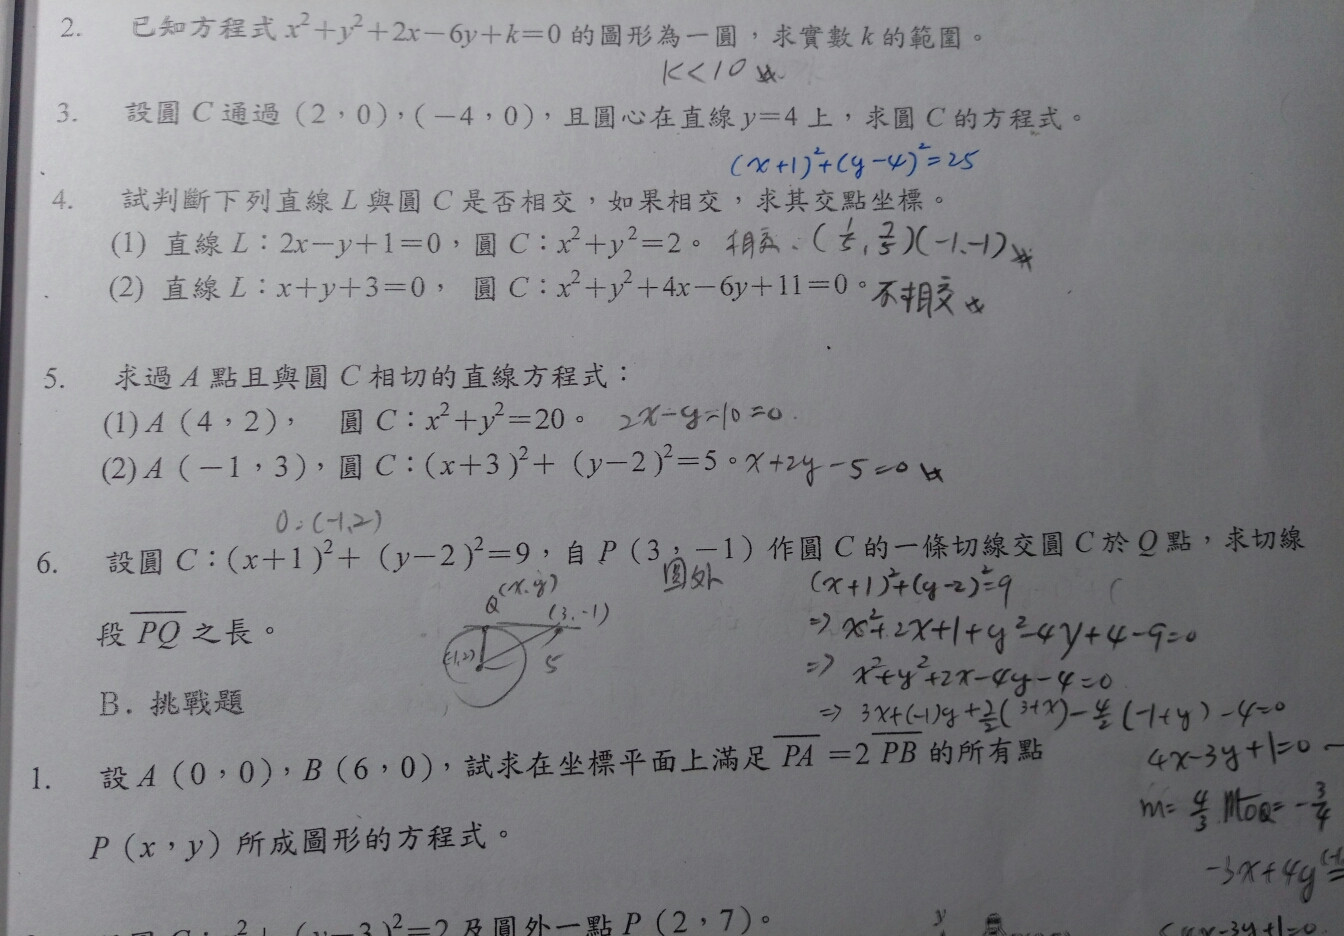 2. 已知方程式 x²+y²+2x-6y+k=0 的圖形為一圓，求實數 k 的範圍。
k<10
3. 設圓 C 通過（2，0），（-4，0），且圓心在直線 y=4 上，求圓 C 的方程式。
(x+1)²+(y-4)²=25
4. 試判斷下列直線 L 與圓 C 是否相交，如果相交，求其交點坐標。
(1) 直線 L：2x-y+1=0，圓 C：x²+y²=2。 相交、(1/5, 7/5)(-1、-1)
(2) 直線 L：x+y+3=0， 圓 C：x²+y²+4x-6y+11=0。不相交
5. 求過 A 點且與圓 C 相切的直線方程式：
(1) A（4，2）， 圓 C：x²+y²=20。 2x-y-10=0
(2) A（-1，3），圓 C：(x+3)²+(y-2)²=5。x+2y-5=0
O:(-1,2)
6. 設圓 C：(x+1)²+(y-2)²=9，自 P（3，-1）作圓 C 的一條切線交圓 C 於 Q 點，求切線
圓外
(x+1)²+(y-2)²=9
段 PQ 之長。
Q (x,y)
(3,-1)
(-1,2)
5
⇒ x²+2x+1+y²-4y+4-9=0
⇒ x²+y²+2x-4y-4=0
B. 挑戰題
⇒ 3x+(-1)y+2/2(3+x)-4/2(-1+y)-4=0
1. 設 A（0，0），B（6，0），試求在坐標平面上滿足 PA=2PB 的所有點
4x-3y+1=0
m=4/3 mOQ=-3/4
P（x，y）所成圖形的方程式。
-3x+4y
及圓外一點 P（2，7）。
y